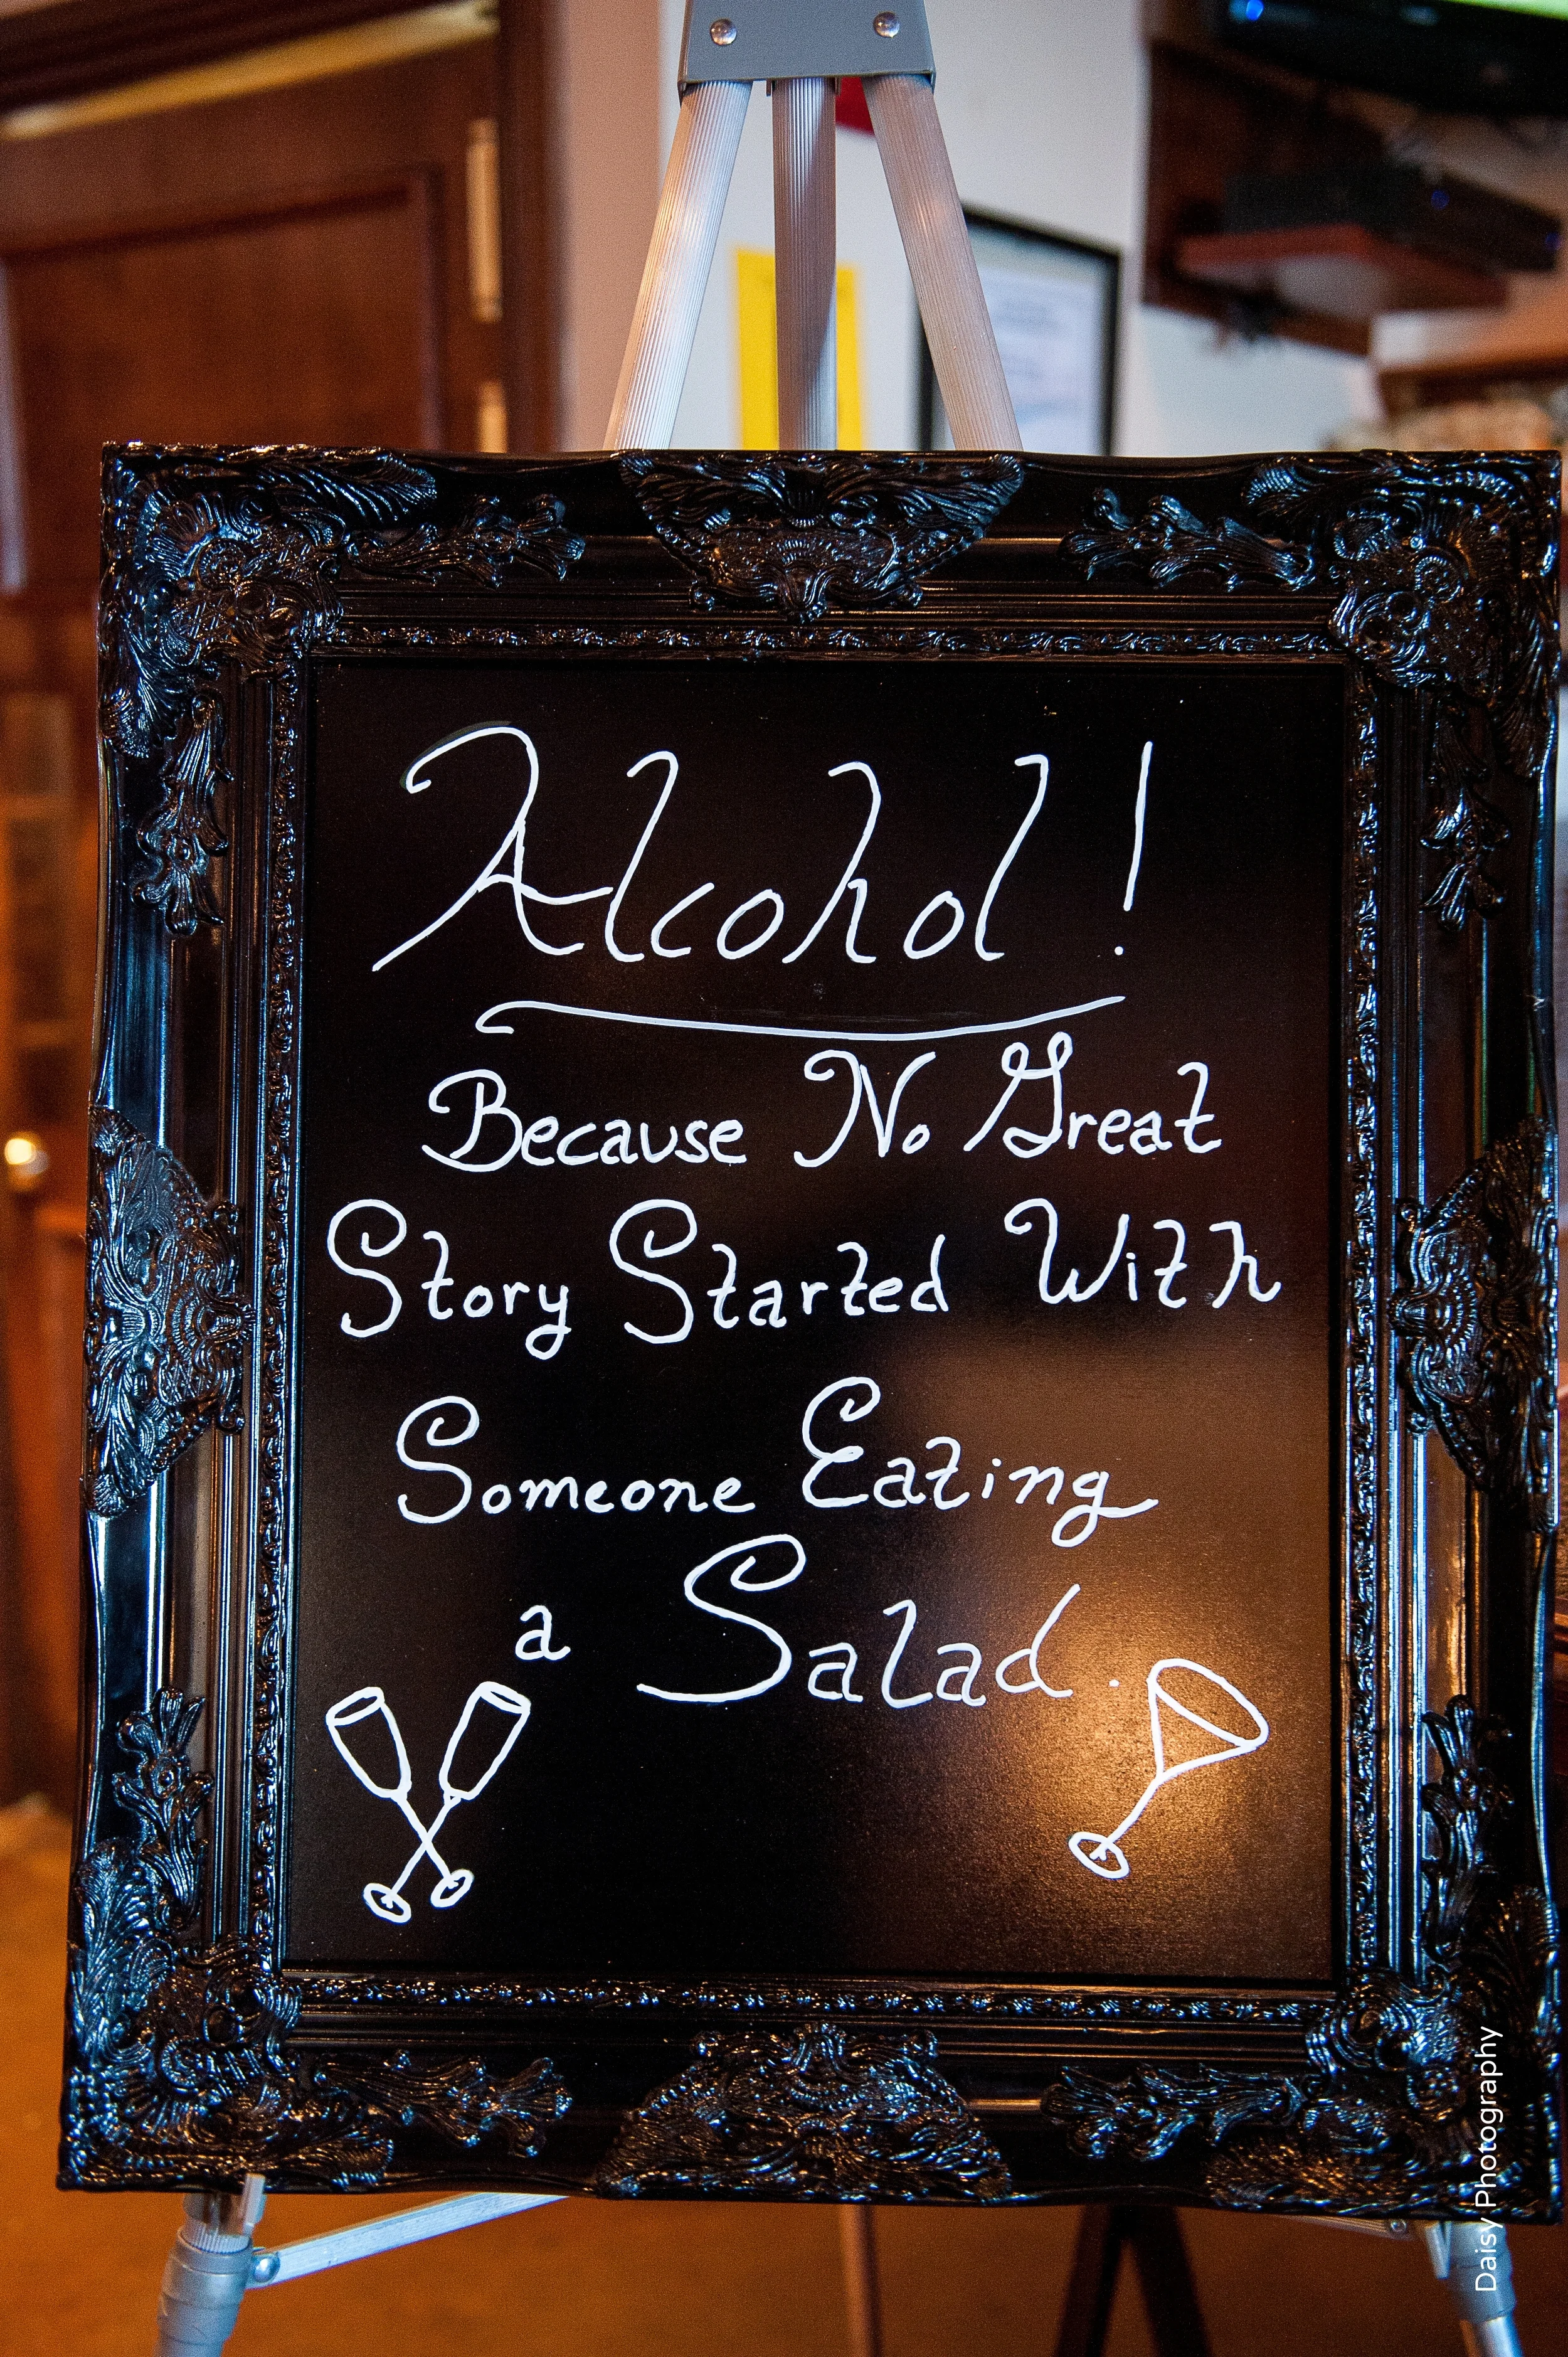 Alcohol!
Because No Great
Story Started With
Someone Eating
a Salad.
Daisy Photography